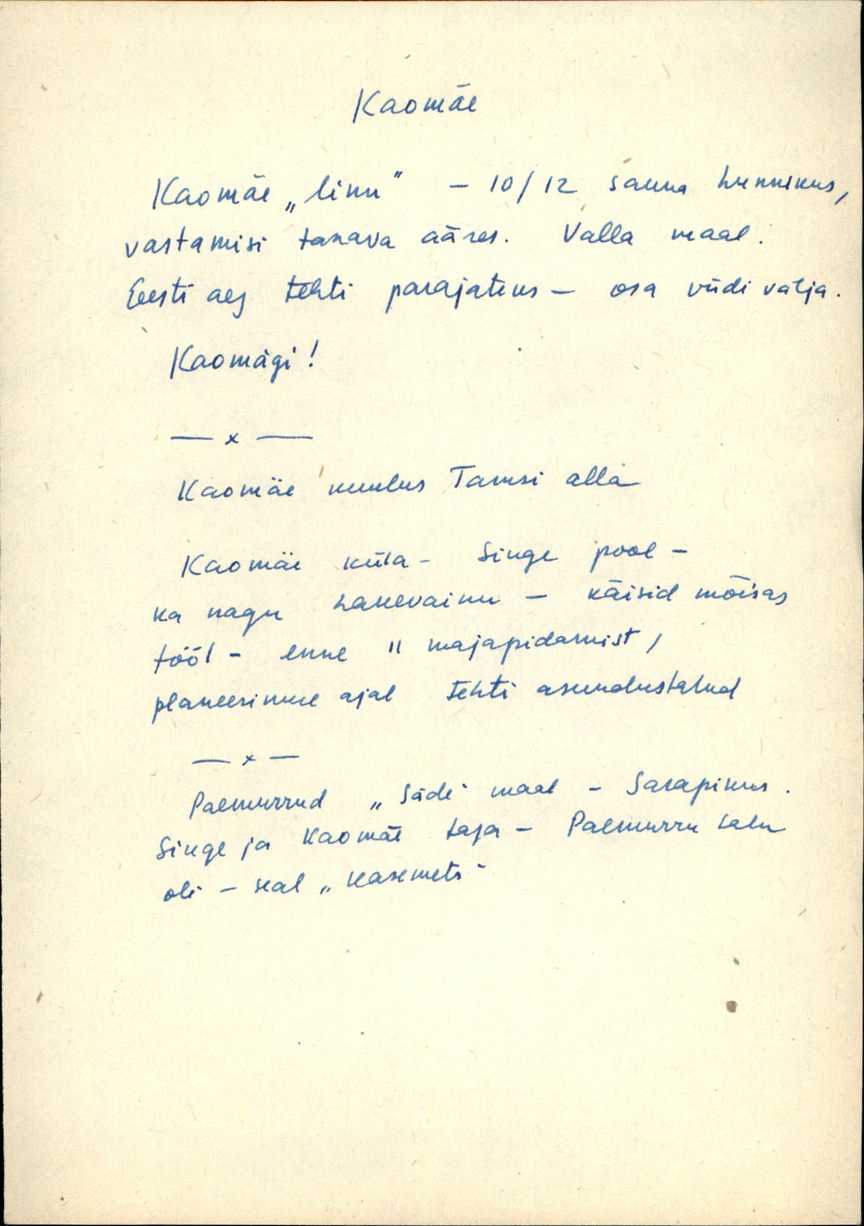 Kaomäe
Kaomäe „linn" – 10/12 sauna hunnikus,
vastamisi tanava ääres. Valla maal.
Eesti aeg tehti parajateks – osa viidi välja.
Kaomägi!
— x —
Kaomäe kuulus Tamsi alla
Kaomäe küla – Singe pool –
ka nagu – käisid mõisas
tööl – enne " majapidamist,
planeerimise ajal tehti asundustalud
— x —
Paemurrud „Säde" maal – Sarapikus.
Singe ja Kaomäe taja – Paemurru talu
oli – seal „Kasemets"